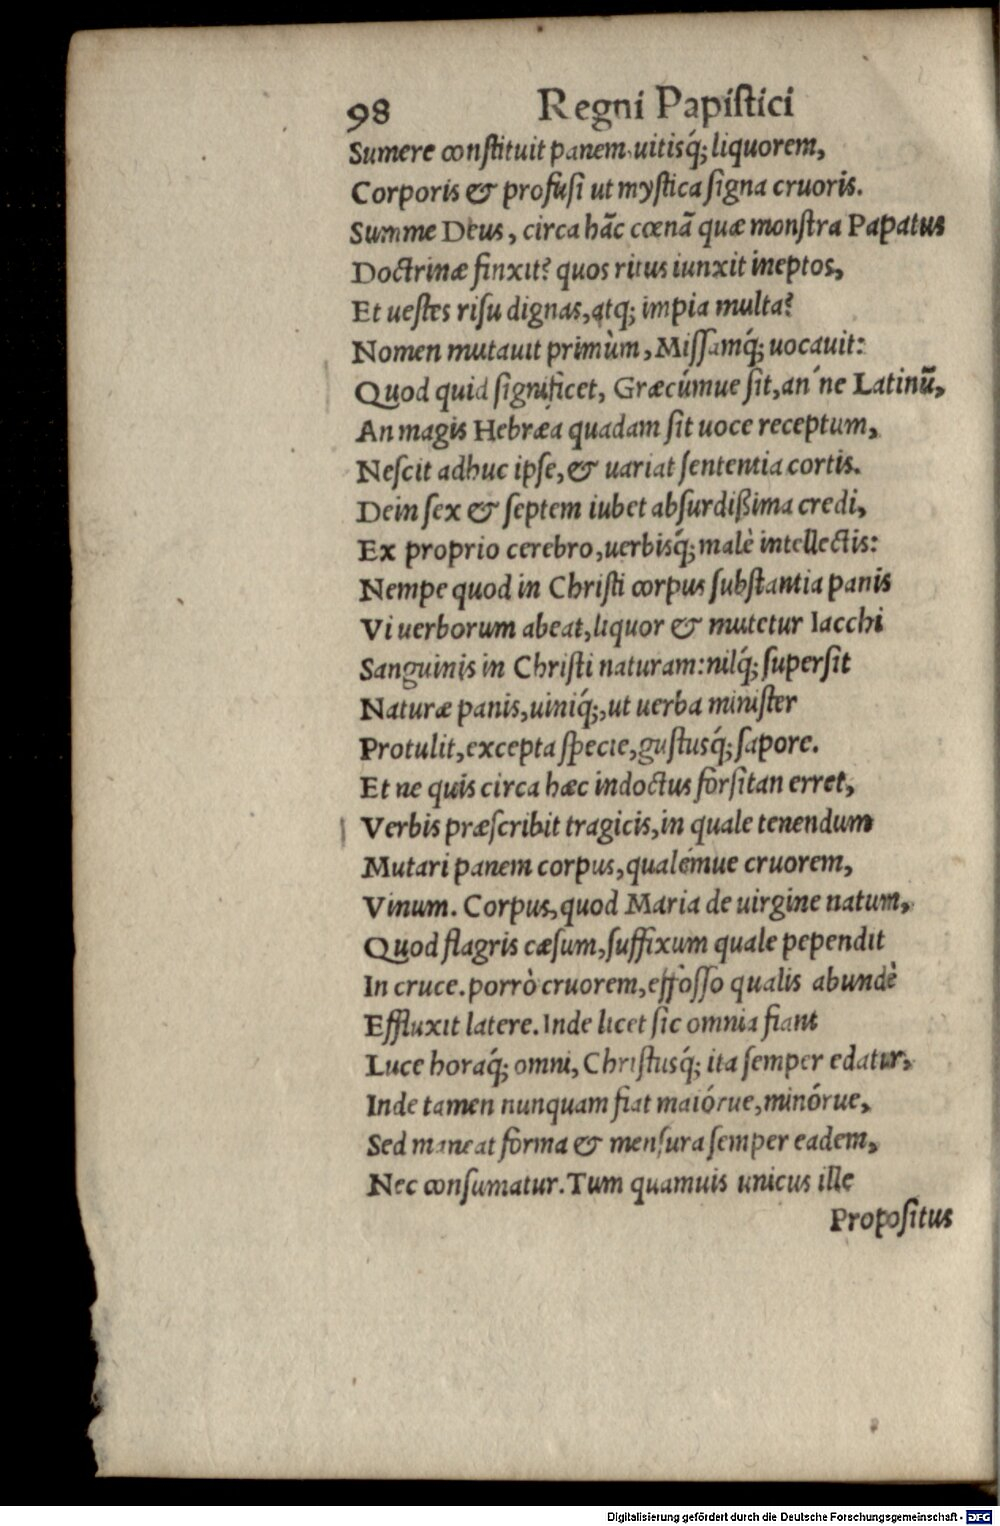 98 Regni Papiſtici
Sumere conſtituit panem uitisq́; liquorem,
Corporis & profuſi ut myſtica ſigna cruoris.
Summe Deus, circa hãc cœnã quæ monſtra Papatus
Doctrinæ finxit? quos ritus iunxit ineptos,
Et ueſtes riſu dignas, atq; impia multa?
Nomen mutauit primùm, Miſſamq́; uocauit:
Quod quid ſignificet, Græcúmue ſit, an´ne Latinũ,
An magis Hebræa quadam ſit uoce receptum,
Neſcit adhuc ipſe, & uariat ſententia cortis.
Dein ſex & ſeptem iubet abſurdißima credi,
Ex proprio cerebro, uerbisq́; malè intellectis:
Nempe quod in Chriſti corpus ſubſtantia panis
Vi uerborum abeat, liquor & mutetur Iacchi
Sanguinis in Chriſti naturam: nilq́; ſuperſit
Naturæ panis, uiniq́;, ut uerba miniſter
Protulit, excepta ſpecie, guſtusq́; ſapore.
Et ne quis circa hæc indoctus forſitan erret,
Verbis præſcribit tragicis, in quale tenendum
Mutari panem corpus, qualémue cruorem,
Vinum. Corpus, quod Maria de uirgine natum,
Quod flagris cæſum, ſuffixum quale pependit
In cruce. porrò cruorem, effoſſo qualis abundè
Effluxit latere. Inde licet ſic omnia fiant
Luce horaq́; omni, Chriſtusq́; ita ſemper edatur,
Inde tamen nunquam fiat maiórue, minórue,
Sed maneat forma & menſura ſemper eadem,
Nec conſumatur. Tum quamuis unicus ille
Propoſitus
Digitalisierung gefördert durch die Deutsche Forschungsgemeinschaft - DFG